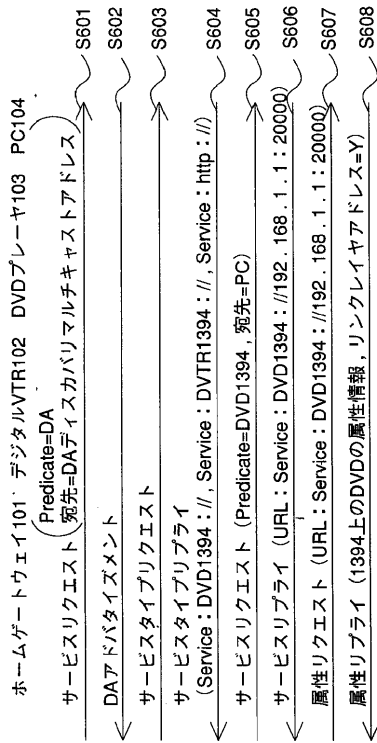 ホームゲートウェイ101 デジタルVTR102 DVDプレーヤ103 PC104
サービスリクエスト(Predicate=DA
宛先=DAディスカバリマルチキャストアドレス) S601
DAアドバタイズメント S602
サービスタイプリクエスト S603
サービスタイプリプライ
(Service:DVD1394://, Service:DVTR1394://, Service:http://) S604
サービスリクエスト(Predicate=DVD1394, 宛先=PC) S605
サービスリプライ(URL:Service:DVD1394://192.168.1.1:20000) S606
属性リクエスト(URL:Service:DVD1394://192.168.1.1:20000) S607
属性リプライ(1394上のDVDの属性情報, リンクレイヤアドレス=Y) S608